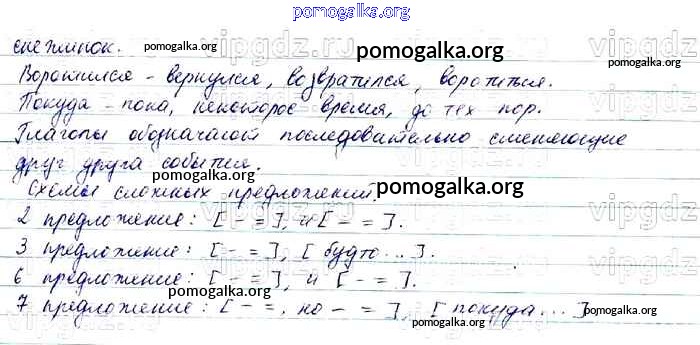 pomogalka.org
снежинок. pomogalka.org pomogalka.org vipgdz.ru
Воротился - вернулся, возвратился, воротиться.
Покуда - пока, некоторое время, до тех пор.
Глаголы обозначают последовательно сменяющие
друг друга события.
Схемы сложных предложений. pomogalka.org
2 предложение: [ - = ], и [ - = ].
3 предложение: [ - = ], [ будто ... ].
6 предложение: [ - = ], и [ - = ].
pomogalka.org pomogalka.org
7 предложение: [ - =, но - = ], [ покуда ... ]
pomogalka.org pomogalka.org